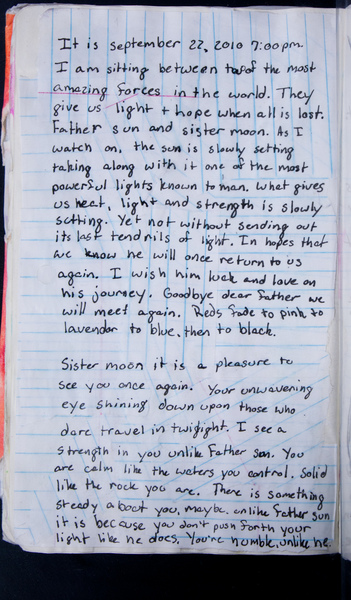 It is september 22, 2010 7:00pm.
I am sitting between two of the most
amazing forces in the world. They
give us light + hope when all is lost.
Father sun and sister moon. As I
watch on, the sun is slowly setting
taking along with it one of the most
powerful lights known to man. What gives
us heat, light and strength is slowly
setting. Yet not without sending out
its last tendrils of light. In hopes that
we know he will once return to us
again. I wish him luck and love on
his journey. Goodbye dear father we
will meet again. Reds fade to pink to
lavender to blue, then to black.
Sister moon it is a pleasure to
see you once again. Your unwavering
eye shining down upon those who
dare travel in twilight. I see a
strength in you unlike Father sun. You
are calm like the waters you control. Solid
like the rock you are. There is something
steady about you, maybe. unlike Father sun
it is because you don't push forth your
light like he does. You're humble, unlike he